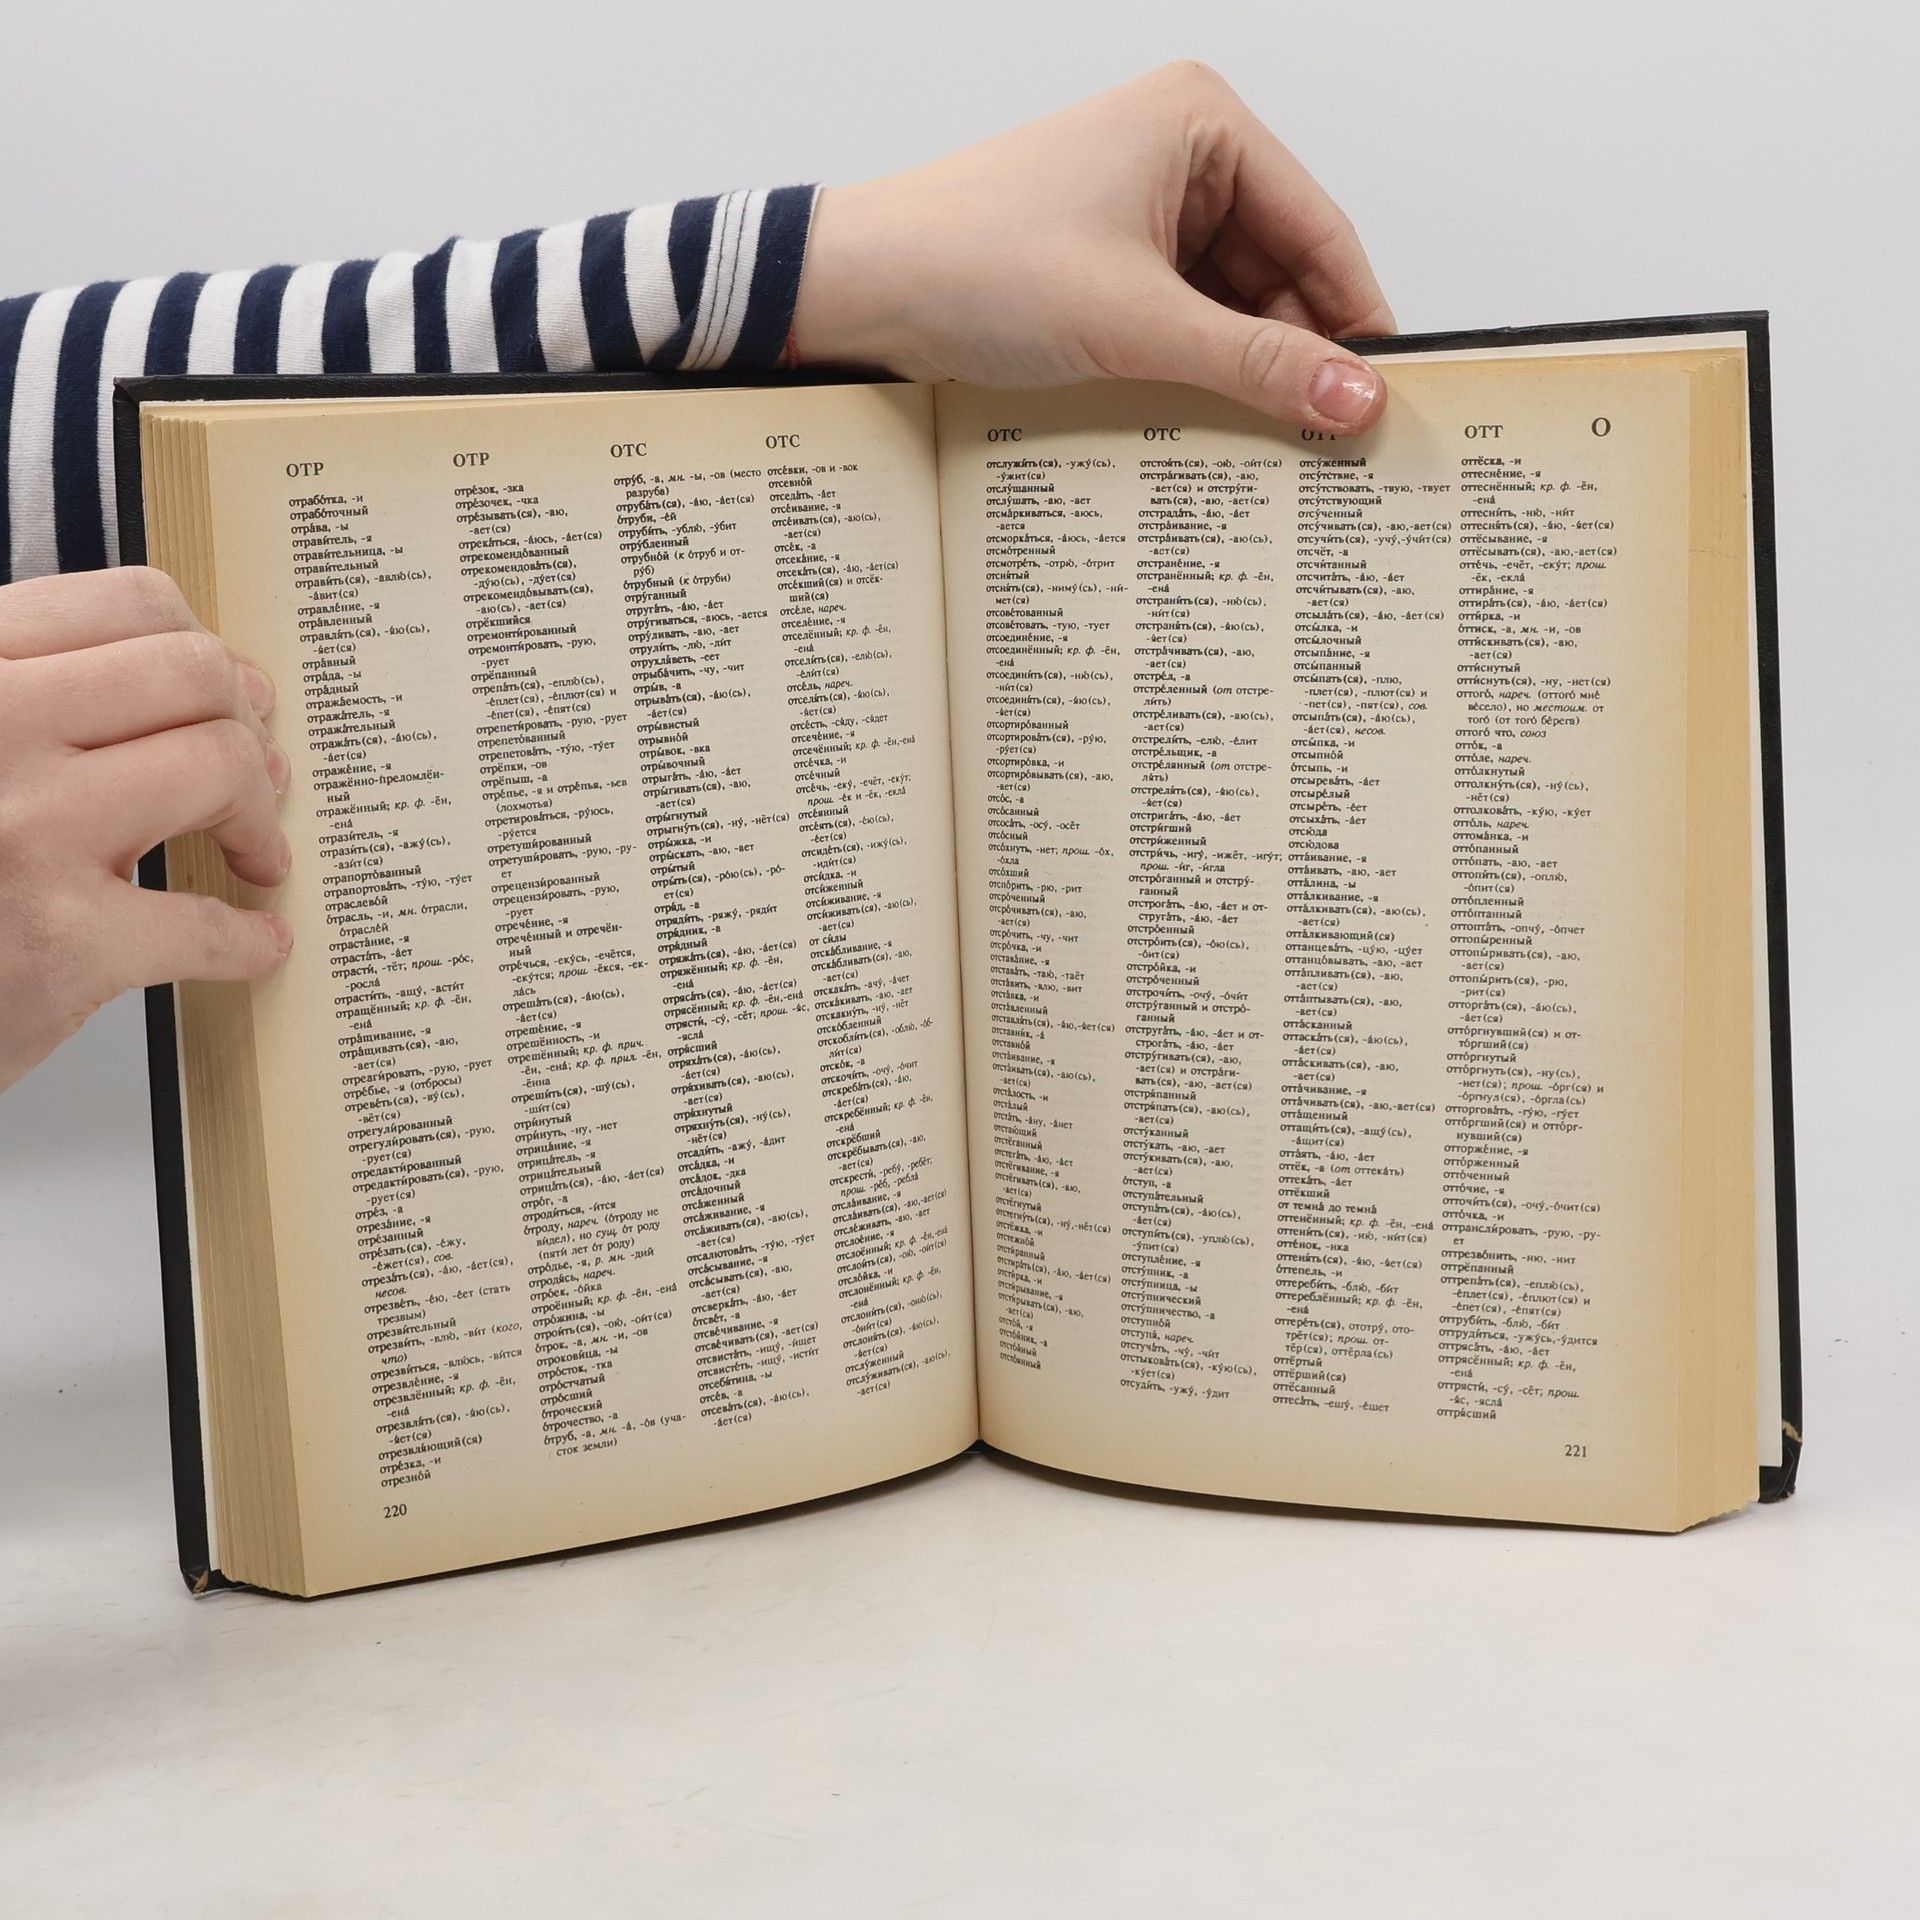 ОТР
отрабо́тка, -и
отрабо́точный
отра́ва, -ы
отрави́тель, -я
отрави́тельница, -ы
отрави́тельный
отрави́ть(ся), -авлю́(сь),
-а́вит(ся)
отравле́ние, -я
отра́вленный
отравля́ть(ся), -я́ю(сь),
-я́ет(ся)
отра́вный
отра́да, -ы
отра́дный
отража́емость, -и
отража́тель, -я
отража́тельный
отража́ть(ся), -а́ю(сь),
-а́ет(ся)
отраже́ние, -я
отражённо-преломлён-
ный
отражённый; кр. ф. -ён,
-ена́
отрази́тель, -я
отрази́ть(ся), -ажу́(сь),
-ази́т(ся)
отрапорто́ванный
отрапортова́ть, -ту́ю, -ту́ет
отраслево́й
о́трасль, -и, мн. о́трасли,
о́трасле́й
отраста́ние, -я
отраста́ть, -а́ет
отрасти́, -тёт; прош. -ро́с,
-росла́
отрасти́ть, -ащу́, -асти́т
отращённый; кр. ф. -ён,
-ена́
отра́щивание, -я
отра́щивать(ся), -аю,
-ает(ся)
отреаги́ровать, -рую, -рует
отре́бье, -я (отбросы)
отреве́ть(ся), -ву́(сь),
-вёт(ся)
отрегули́рованный
отрегули́ровать(ся), -рую,
-рует(ся)
отредакти́рованный
отредакти́ровать(ся), -рую,
-рует(ся)
отре́з, -а
отреза́ние, -я
отре́занный
отре́зать(ся), -е́жу,
-е́жет(ся), сов.
отреза́ть(ся), -а́ю, -а́ет(ся),
несов.
отрезве́ть, -е́ю, -е́ет (стать
трезвым)
отрезви́тельный
отрезви́ть, -влю́, -ви́т (кого,
что)
отрезви́ться, -влю́сь, -ви́тся
отрезвле́ние, -я
отрезвлённый; кр. ф. -ён,
-ена́
отрезвля́ть(ся), -я́ю(сь),
-я́ет(ся)
отрезвля́ющий(ся)
отре́зка, -и
отрезно́й
220
ОТР
отре́зок, -зка
отре́зочек, -чка
отре́зывать(ся), -аю,
-ает(ся)
отрека́ться, -а́юсь, -а́ет(ся)
отрекомендо́ванный
отрекомендова́ть(ся),
-ду́ю(сь), -ду́ет(ся)
отрекомендо́вывать(ся),
-аю(сь), -ает(ся)
отрёкшийся
отремонти́рованный
отремонти́ровать, -рую,
-рует
отрёпанный
отрепа́ть(ся), -еплю́(сь),
-е́плет(ся), -е́плют(ся) и
-е́пет(ся), -е́пят(ся)
отрепети́ровать, -рую, -рует
отрепето́ванный
отрепетова́ть, -ту́ю, -ту́ет
отрёпки, -ов
отрёпыш, -а
отре́пье, -я и отре́пья, -ьев
(лохмотья)
отретирова́ться, -ру́юсь,
-ру́ется
отретуши́рованный
отретуши́ровать, -рую, -ру-
ет
отрецензи́рованный
отрецензи́ровать, -рую,
-рует
отрече́ние, -я
отрече́нный и отречён-
ный
отре́чься, -еку́сь, -ечётся,
-еку́тся; прош. -ёкся, -ек-
ла́сь
отреша́ть(ся), -а́ю(сь),
-а́ет(ся)
отреше́ние, -я
отрешённость, -и
отрешённый; кр. ф. прич.
-ён, -ена́; кр. ф. прил. -ён,
-ённа
отреши́ть(ся), -шу́(сь),
-ши́т(ся)
отри́нутый
отри́нуть, -ну, -нет
отрица́ние, -я
отрица́тель, -я
отрица́тельный
отрица́ть(ся), -а́ю, -а́ет(ся)
отро́г, -а
отроди́ться, -и́тся
о́троду, нареч. (о́троду не
ви́дел), но сущ. о́т роду
(пяти́ лет о́т роду)
отро́дье, -я, р. мн. -дий
отродя́сь, нареч.
отро́ек, -о́йка
отроённый; кр. ф. -ён, -ена́
отро́жина, -ы
отрои́ть(ся), -ою́, -ои́т(ся)
о́трок, -а, мн. -и, -ов
отрокови́ца, -ы
отро́сток, -тка
отро́стчатый
отро́сший
о́троческий
о́трочество, -а
о́труб, -а, мн. -а́, -о́в (уча-
сток земли)
ОТС
отру́б, -а, мн. -ы, -ов (место
разруба)
отруба́ть(ся), -а́ю, -а́ет(ся)
о́труби, -е́й
отруби́ть, -ублю́, -у́бит
отру́бленный
отрубно́й (к о́труб и от-
ру́б)
о́трубный (к о́труби)
отру́ганный
отруга́ть, -а́ю, -а́ет
отру́гиваться, -аюсь, -ается
отру́ливать, -аю, -ает
отрули́ть, -лю́, -ли́т
отрухля́веть, -еет
отрыба́чить, -чу, -чит
отры́в, -а
отрыва́ть(ся), -а́ю(сь),
-а́ет(ся)
отры́вистый
отрывно́й
отры́вок, -вка
отры́вочный
отрыга́ть, -а́ю, -а́ет
отры́гивать(ся), -аю,
-ает(ся)
отры́гнутый
отрыгну́ть(ся), -ну́, -нёт(ся)
отры́жка, -и
отры́скать, -аю, -ает
отры́тый
отры́ть(ся), -ро́ю(сь), -ро́-
ет(ся)
отря́д, -а
отряди́ть, -ряжу́, -ряди́т
отря́дник, -а
отря́дный
отряжа́ть(ся), -а́ю, -а́ет(ся)
отряжённый; кр. ф. -ён,
-ена́
отряса́ть(ся), -а́ю, -а́ет(ся)
отрясённый; кр. ф. -ён,-ена́
отрясти́, -су́, -сёт; прош. -я́с,
-ясла́
отря́сший
отряха́ть(ся), -а́ю(сь),
-а́ет(ся)
отря́хивать(ся), -аю(сь),
-ает(ся)
отря́хнутый
отряхну́ть(ся), -ну́(сь),
-нёт(ся)
отсади́ть, -ажу́, -а́дит
отса́дка, -и
отса́док, -дка
отса́дочный
отса́женный
отса́живание, -я
отса́живать(ся), -аю(сь),
-ает(ся)
отсалютова́ть, -ту́ю, -ту́ет
отса́сывание, -я
отса́сывать(ся), -аю,
-ает(ся)
отсверка́ть, -а́ю, -а́ет
о́тсвет, -а
отсве́чивание, -я
отсве́чивать(ся), -ает(ся)
отсвиста́ть, -ищу́, -и́щет
отсвисте́ть, -ищу́, -исти́т
отсебя́тина, -ы
отсе́в, -а
отсева́ть(ся), -а́ю(сь),
-а́ет(ся)
ОТС
отсе́вки, -ов и -вок
отсевно́й
отседа́ть, -а́ет
отсе́ивание, -я
отсе́ивать(ся), -аю(сь),
-ает(ся)
отсе́к, -а
отсека́ние, -я
отсека́ть(ся), -а́ю, -а́ет(ся)
отсе́кший(ся) и отсёк-
ший(ся)
отсе́ле, нареч.
отселе́ние, -я
отселённый; кр. ф. -ён,
-ена́
отсели́ть(ся), -елю́(сь),
-е́ли́т(ся)
отсе́ль, нареч.
отселя́ть(ся), -я́ю(сь),
-я́ет(ся)
отсе́сть, -ся́ду, -ся́дет
отсече́ние, -я
отсечённый; кр. ф. -ён,-ена́
отсе́чка, -и
отсе́чный
отсе́чь, -еку́, -ечёт, -еку́т;
прош. -е́к и -ёк, -екла́
отсе́янный
отсе́ять(ся), -е́ю(сь),
-е́ет(ся)
отсиде́ть(ся), -ижу́(сь),
-иди́т(ся)
отси́дка, -и
отси́женный
отси́живание, -я
отси́живать(ся), -аю(сь),
-ает(ся)
от си́лы
отска́бливание, -я
отска́бливать(ся), -аю,
-ает(ся)
отскака́ть, -ачу́, -а́чет
отска́кивать, -аю, -ает
отскакну́ть, -ну́, -нёт
отско́бленный
отскобли́ть(ся), -облю́, -о́б-
ли́т(ся)
отско́к, -а
отскочи́ть, -очу́, -о́чит
отскреба́ть(ся), -а́ю,
-а́ет(ся)
отскребённый; кр. ф. -ён,
-ена́
отскрёбший
отскрёбывать(ся), -аю,
-ает(ся)
отскрести́, -ребу́, -ребёт;
прош. -рёб, -ребла́
отсла́ивание, -я
отсла́ивать(ся), -аю,-ает(ся)
отсле́живать, -аю, -ает
отслое́ние, -я
отслоённый; кр. ф. -ён,-ена́
отслои́ть(ся), -ою́, -ои́т(ся)
отсло́йка, -и
отслонённый; кр. ф. -ён,
-ена́
отслони́ть(ся), -оню́(сь),
-о́ни́т(ся)
отслоня́ть(ся), -я́ю(сь),
-я́ет(ся)
отслу́женный
отслу́живать(ся), -аю(сь),
-ает(ся)
ОТС
отслужи́ть(ся), -ужу́(сь),
-у́жит(ся)
отслу́шанный
отслу́шать, -аю, -ает
отсма́ркиваться, -аюсь,
-ается
отсморка́ться, -а́юсь, -а́ется
отсмо́тренный
отсмотре́ть, -отрю́, -о́трит
отсня́тый
отсня́ть(ся), -ниму́(сь), -ни́-
мет(ся)
отсове́тованный
отсове́товать, -тую, -тует
отсоедине́ние, -я
отсоединённый; кр. ф. -ён,
-ена́
отсоедини́ть(ся), -ню́(сь),
-ни́т(ся)
отсоединя́ть(ся), -я́ю(сь),
-я́ет(ся)
отсортиро́ванный
отсортирова́ть(ся), -ру́ю,
-ру́ет(ся)
отсортиро́вка, -и
отсортиро́вывать(ся), -аю,
-ает(ся)
отсо́с, -а
отсо́санный
отсоса́ть, -осу́, -осёт
отсо́сный
отсо́хнуть, -нет; прош. -о́х,
-о́хла
отсо́хший
отспо́рить, -рю, -рит
отсро́ченный
отсро́чивать(ся), -аю,
-ает(ся)
отсро́чить, -чу, -чит
отсро́чка, -и
отстава́ние, -я
отстава́ть, -таю́, -таёт
отста́вить, -влю, -вит
отста́вка, -и
отста́вленный
отставля́ть(ся), -я́ю,-я́ет(ся)
отставни́к, -а́
отставно́й
отста́ивание, -я
отста́ивать(ся), -аю(сь),
-ает(ся)
отста́лость, -и
отста́лый
отста́ть, -а́ну, -а́нет
отстаю́щий
отстёганный
отстега́ть, -а́ю, -а́ет
отстёгивание, -я
отстёгивать(ся), -аю,
-ает(ся)
отстёгнутый
отстегну́ть(ся), -ну́,-нёт(ся)
отстёжка, -и
отстежно́й
отсти́ранный
отстира́ть(ся), -а́ю, -а́ет(ся)
отсти́рка, -и
отсти́рывание, -я
отсти́рывать(ся), -аю,
-ает(ся)
отсто́й, -я
отсто́йник, -а
отсто́йный
отсто́янный
ОТС
отстоя́ть(ся), -ою́, -ои́т(ся)
отстра́гивать(ся), -аю,
-ает(ся) и отстру́ги-
вать(ся), -аю, -ает(ся)
отстрада́ть, -а́ю, -а́ет
отстра́ивание, -я
отстра́ивать(ся), -аю(сь),
-ает(ся)
отстране́ние, -я
отстранённый; кр. ф. -ён,
-ена́
отстрани́ть(ся), -ню́(сь),
-ни́т(ся)
отстраня́ть(ся), -я́ю(сь),
-я́ет(ся)
отстра́чивать(ся), -аю,
-ает(ся)
отстре́л, -а
отстре́ленный (от отстре-
ли́ть)
отстре́ливать(ся), -аю(сь),
-ает(ся)
отстрели́ть, -елю́, -е́лит
отстре́льщик, -а
отстре́лянный (от отстре-
ля́ть)
отстреля́ть(ся), -я́ю(сь),
-я́ет(ся)
отстрига́ть, -а́ю, -а́ет
отстри́гший
отстри́женный
отстри́чь, -игу́, -ижёт, -игу́т;
прош. -и́г, -и́гла
отстро́ганный и отстру́-
ганный
отстрога́ть, -а́ю, -а́ет и от-
струга́ть, -а́ю, -а́ет
отстро́енный
отстро́ить(ся), -о́ю(сь),
-о́ит(ся)
отстро́йка, -и
отстро́ченный
отстрочи́ть, -очу́, -о́чит
отстру́ганный и отстро́-
ганный
отструга́ть, -а́ю, -а́ет и от-
строга́ть, -а́ю, -а́ет
отстру́гивать(ся), -аю,
-ает(ся) и отстра́ги-
вать(ся), -аю, -ает(ся)
отстря́панный
отстря́пать(ся), -аю(сь),
-ает(ся)
отсту́канный
отсту́кать, -аю, -ает
отсту́кивать(ся), -аю,
-ает(ся)
о́тступ, -а
отступа́тельный
отступа́ть(ся), -а́ю(сь),
-а́ет(ся)
отступи́ть(ся), -уплю́(сь),
-у́пит(ся)
отступле́ние, -я
отсту́пник, -а
отсту́пница, -ы
отсту́пнический
отсту́пничество, -а
отступно́й
отступя́, нареч.
отстуча́ть, -чу́, -чи́т
отстыкова́ть(ся), -ку́ю(сь),
-ку́ет(ся)
отсуди́ть, -ужу́, -у́дит
отсу́женный
отсу́тствие, -я
отсу́тствовать, -твую, -твует
отсу́тствующий
отсу́ченный
отсу́чивать(ся), -аю,-ает(ся)
отсучи́ть(ся), -учу́,-у́чи́т(ся)
отсчёт, -а
отсчи́танный
отсчита́ть, -а́ю, -а́ет
отсчи́тывать(ся), -аю,
-ает(ся)
отсыла́ть(ся), -а́ю, -а́ет(ся)
отсы́лка, -и
отсы́лочный
отсыпа́ние, -я
отсы́панный
отсы́пать(ся), -плю,
-плет(ся), -плют(ся) и
-пет(ся), -пят(ся), сов.
отсыпа́ть(ся), -а́ю(сь),
-а́ет(ся), несов.
отсы́пка, -и
отсыпно́й
отсы́пь, -и
отсырева́ть, -а́ет
отсыре́лый
отсыре́ть, -е́ет
отсыха́ть, -а́ет
отсю́да
отсю́дова
отта́ивание, -я
отта́ивать, -аю, -ает
отта́лина, -ы
отта́лкивание, -я
отта́лкивать(ся), -аю(сь),
-ает(ся)
отта́лкивающий(ся)
оттанцева́ть, -цу́ю, -цу́ет
оттанцо́вывать, -аю, -ает
отта́пливать(ся), -аю,
-ает(ся)
отта́птывать(ся), -аю,
-ает(ся)
отта́сканный
оттаска́ть(ся), -а́ю(сь),
-а́ет(ся)
отта́скивать(ся), -аю,
-ает(ся)
отта́чивание, -я
отта́чивать(ся), -аю,-ает(ся)
отта́щенный
оттащи́ть(ся), -ащу́(сь),
-а́щит(ся)
отта́ять, -а́ю, -а́ет
оттёк, -а (от оттека́ть)
оттека́ть, -а́ет
оттёкший
от темна́ до темна́
оттенённый; кр. ф. -ён, -ена́
оттени́ть(ся), -ню́, -ни́т(ся)
отте́нок, -нка
оттеня́ть(ся), -я́ю, -я́ет(ся)
о́ттепель, -и
оттереби́ть, -блю́, -би́т
оттереблённый; кр. ф. -ён,
-ена́
оттере́ть(ся), ототру́, ото-
трёт(ся); прош. от-
тёр(ся), оттёрла(сь)
оттёртый
оттёрший(ся)
оттёсанный
оттеса́ть, -ешу́, -е́шет
ОТТ
О
оттёска, -и
оттесне́ние, -я
оттеснённый; кр. ф. -ён,
-ена́
оттесни́ть, -ню́, -ни́т
оттесня́ть(ся), -я́ю, -я́ет(ся)
оттёсывание, -я
оттёсывать(ся), -аю,-ает(ся)
отте́чь, -ечёт, -еку́т; прош.
-ёк, -екла́
оттира́ние, -я
оттира́ть(ся), -а́ю, -а́ет(ся)
отти́рка, -и
о́ттиск, -а, мн. -и, -ов
отти́скивать(ся), -аю,
-ает(ся)
отти́снутый
отти́снуть(ся), -ну, -нет(ся)
оттого́, нареч. (оттого́ мне́
ве́село), но местоим. от
того́ (от того́ бе́рега)
оттого́ что, союз
отто́к, -а
отто́ле, нареч.
отто́лкнутый
оттолкну́ть(ся), -ну́(сь),
-нёт(ся)
оттолкова́ть, -ку́ю, -ку́ет
отто́ль, нареч.
оттома́нка, -и
отто́панный
отто́пать, -аю, -ает
оттопи́ть(ся), -оплю́,
-о́пит(ся)
отто́пленный
отто́птанный
оттопта́ть, -опчу́, -о́пчет
оттопы́ренный
оттопы́ривать(ся), -аю,
-ает(ся)
оттопы́рить(ся), -рю,
-рит(ся)
отторга́ть(ся), -а́ю(сь),
-а́ет(ся)
отто́ргнувший(ся) и от-
то́ргший(ся)
отто́ргнутый
отто́ргнуть(ся), -ну(сь),
-нет(ся); прош. -о́рг(ся) и
-о́ргнул(ся), -о́ргла(сь)
отторгова́ть, -гу́ю, -гу́ет
отто́ргший(ся) и отто́рг-
нувший(ся)
отторже́ние, -я
отто́рженный
отто́ченный
отто́чие, -я
отточи́ть(ся), -очу́,-о́чит(ся)
отто́чка, -и
оттрансли́ровать, -рую, -ру-
ет
оттрезво́нить, -ню, -нит
оттрёпанный
оттрепа́ть(ся), -еплю́(сь),
-е́плет(ся), -е́плют(ся) и
-е́пет(ся), -е́пят(ся)
оттруби́ть, -блю́, -би́т
оттруди́ться, -ужу́сь,-у́дится
оттряса́ть, -а́ю, -а́ет
оттрясённый; кр. ф. -ён,
-ена́
оттрясти́, -су́, -сёт; прош.
-я́с, -ясла́
оттря́сший
221